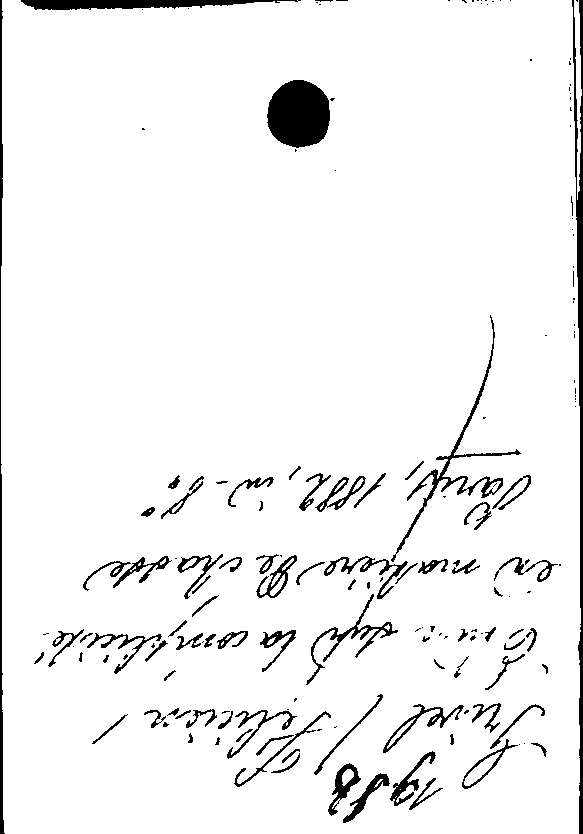 1958
Grivel (Félicien)
la complicité
en matière de chasse
Paris, 1882, in-8°.